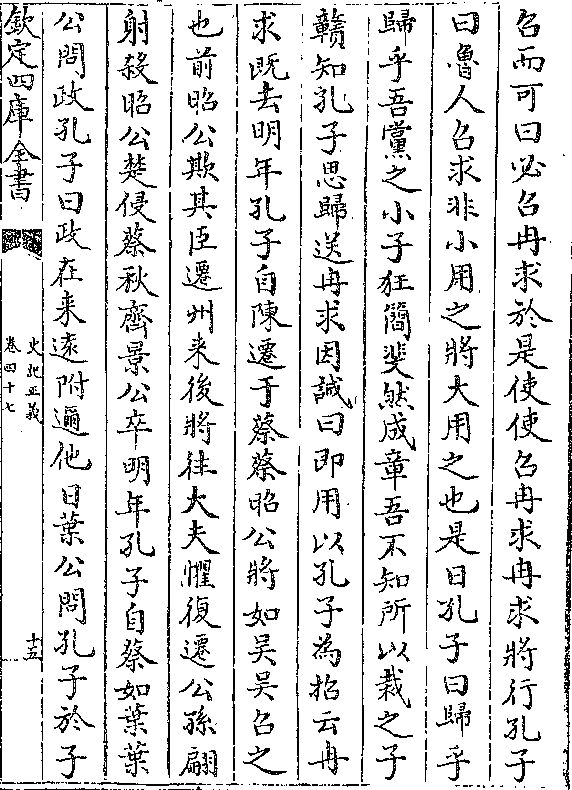 召而可曰必召冉求於是使使召冉求冉求將行孔子
曰魯人召求非小用之將大用之也是日孔子曰歸乎
歸乎吾黨之小子狂簡斐然成章吾不知所以裁之子
贛知孔子思歸送冉求因誡曰即用以孔子為招云冉
求既去明年孔子自陳遷于蔡蔡昭公將如吳吳召之
也前昭公欺其臣遷州来後將往大夫懼復遷公孫翩
射殺昭公楚侵蔡秋齊景公卒明年孔子自蔡如葉葉
公問政孔子曰政在来遠附邇他日葉公問孔子於子
欽定四庫全書
史記正義
卷四十七
十五